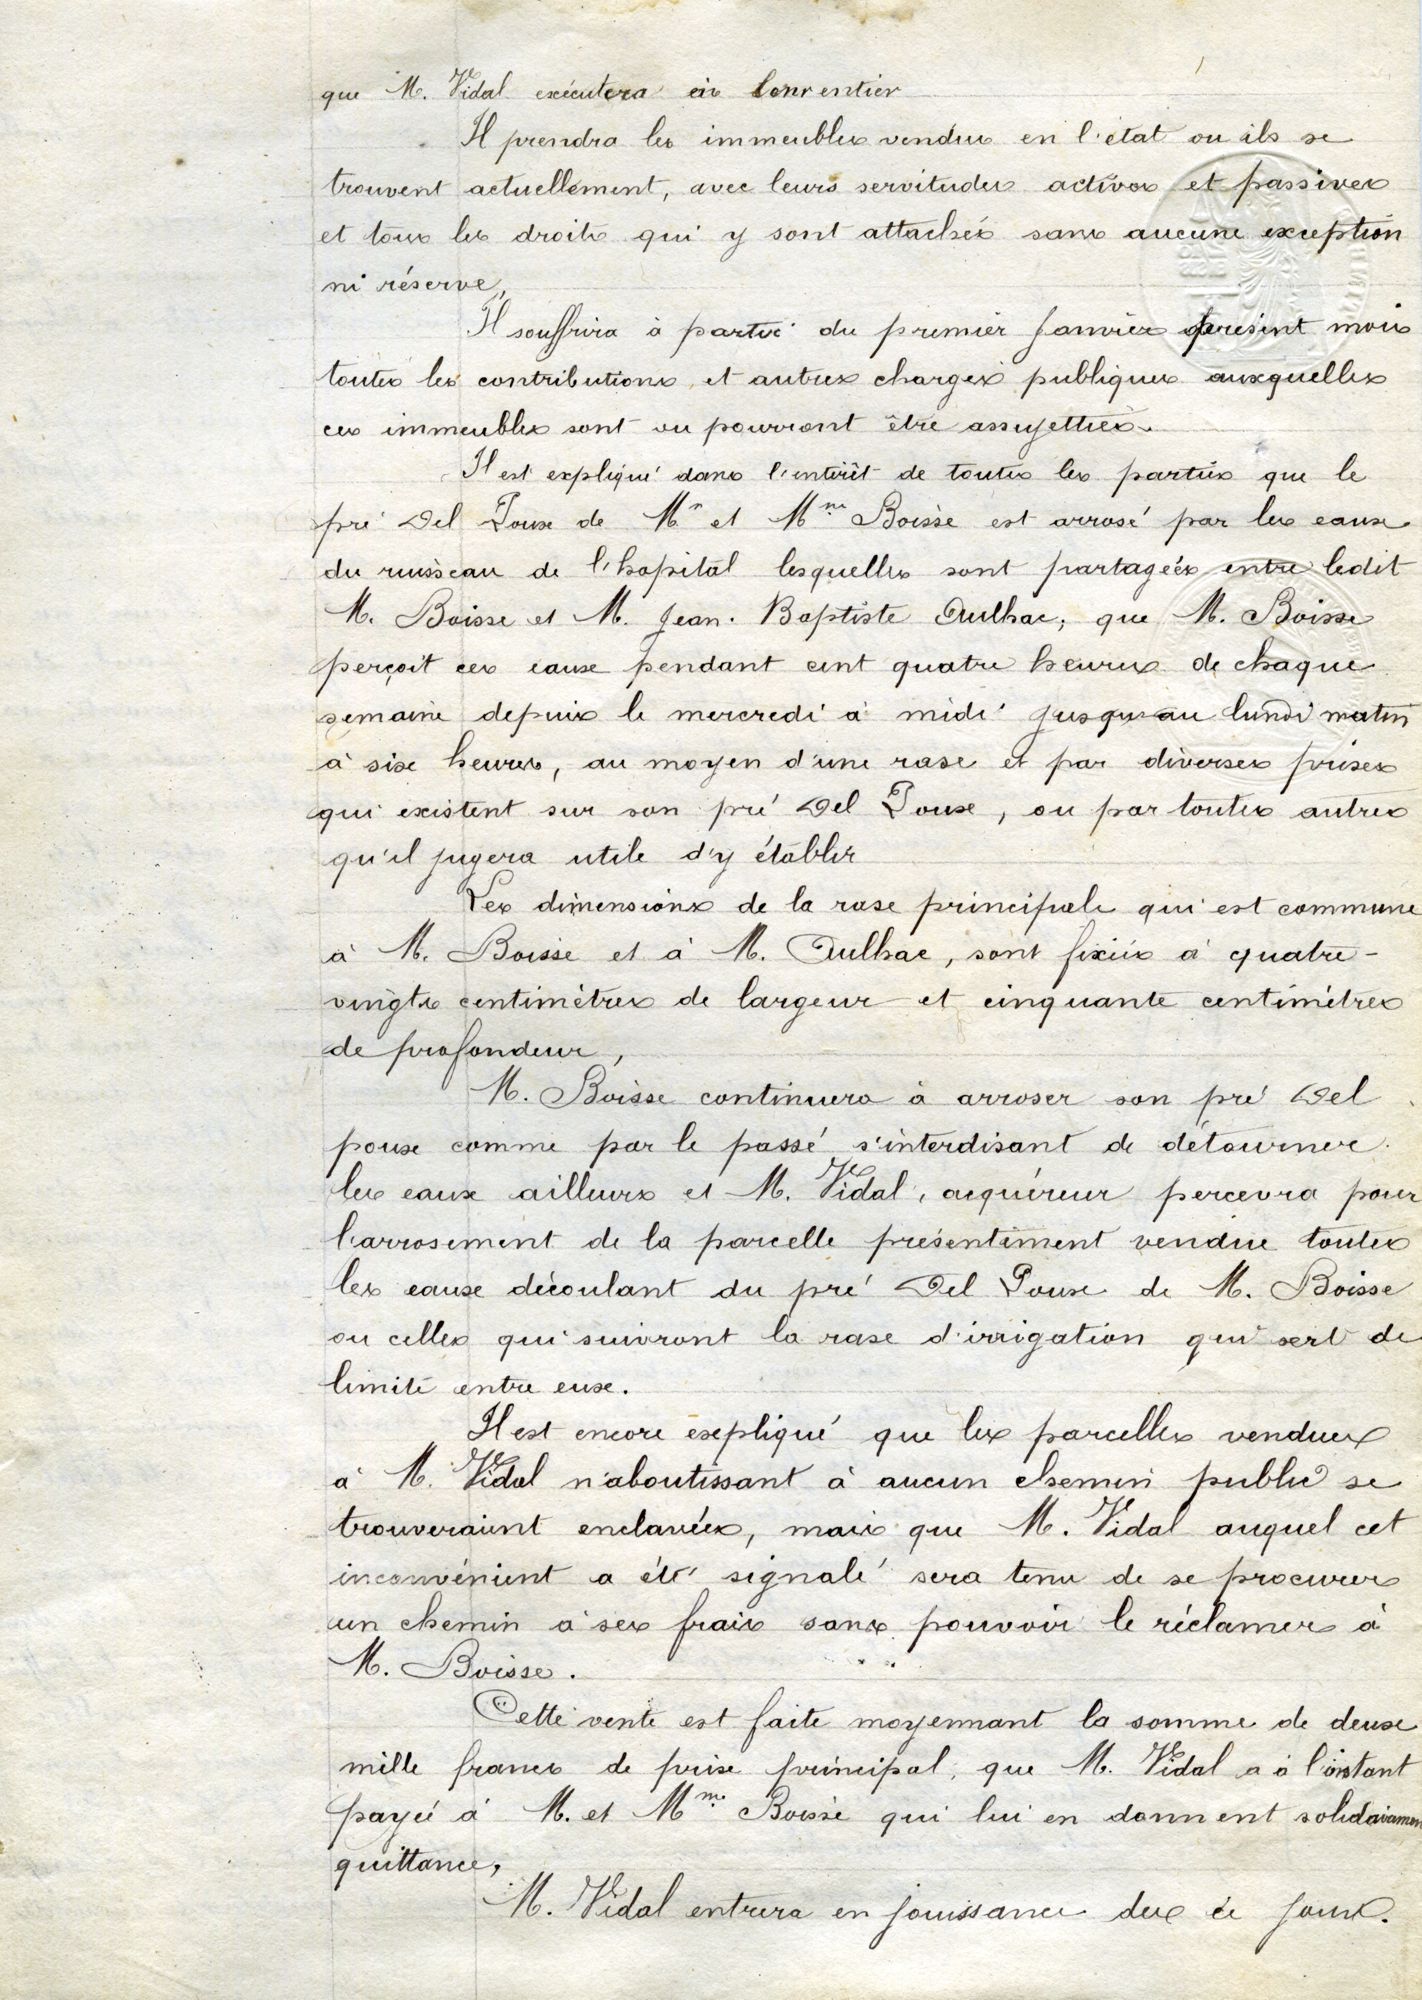 que M. Vidal exécutera en leur entier
Il prendra les immeubles vendus en l'état ou ils se
trouvent actuellement, avec leurs servitudes actives et passives
et tous les droits qui y sont attachés sans aucune exception
ni réserve,
Il souffrira à partir du premier Janvier présent mois
toutes les contributions et autres charges publiques auxquelles
ces immeubles sont ou pourront être assujetties.
Il est expliqué dans l'entérêt de toutes les parties que le
pré Del Poux de Mr et Mme Boisse est arrosé par les eaux
du ruisseau de l'hopital lesquelles sont partagées entre ledit
M. Boisse et M. Jean-Baptiste Aulhac, que M. Boisse
perçoit ces eaux pendant cent quatre heures de chaque
semaine depuis le mercredi à midi jusqu'au lundi matin
à six heures, au moyen d'une rase et par diverses prises
qui existent sur son pré Del Poux, ou par toutes autres
qu'il jugera utile d'y établir
Les dimensions de la rase principale qui est commune
à M. Boisse et à M. Aulhac, sont fixées à quatre-
vingts centimètres de largeur et cinquante centimètres
de profondeur,
M. Boisse continuera à arroser son pré Del
poux comme par le passé s'interdisant de détourner
les eaux ailleurs et M. Vidal, acquéreur percevra pour
l'arrosement de la parcelle présentement vendue toutes
les eaux découlant du pré Del Poux de M. Boisse
ou celles qui suivront la rase d'irrigation qui sert de
limite entre eux.
Il est encore expliqué que les parcelles vendues
à M. Vidal n'aboutissant à aucun chemin public se
trouveraient enclavées, mais que M. Vidal auquel cet
inconvénient a été signalé sera tenu de se procurer
un chemin à ses frais sans pouvoir le réclamer à
M. Boisse.
Cette vente est faite moyennant la somme de deux
mille francs de prix principal, que M. Vidal a à l'instant
payée à M. et Mme Boisse qui lui en donnent solidairement
quittance,
M. Vidal entrera en jouissance dès ce jour.